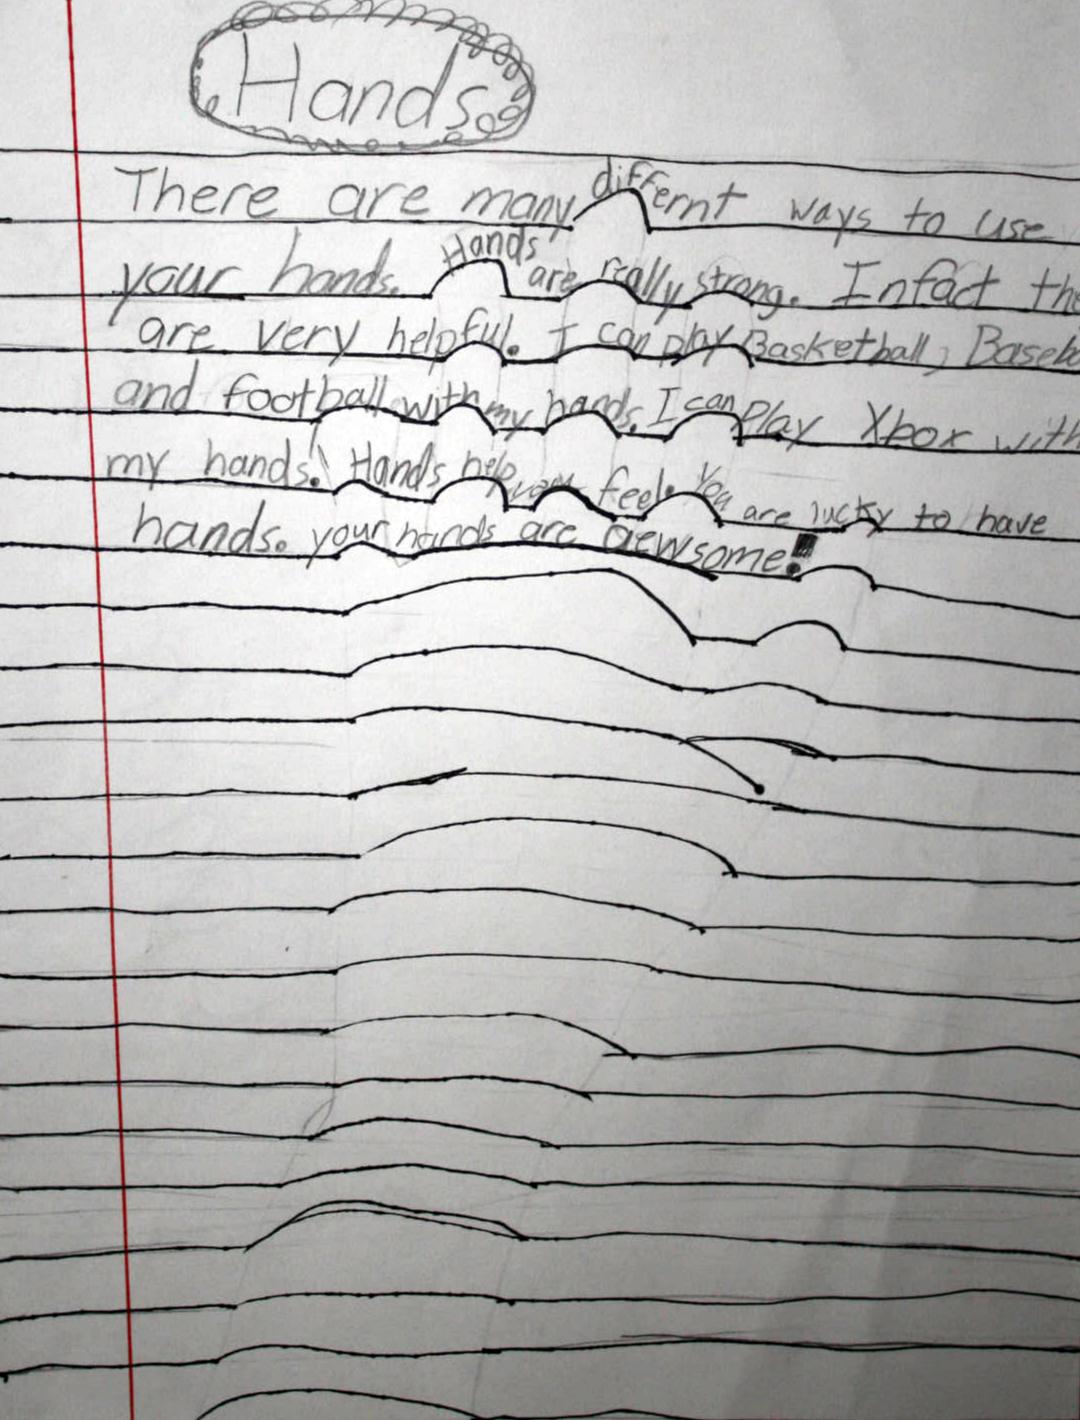 Hands
There are many differnt ways to use
your hands. Hands are really strong. Infact the
are very helpful. I can play Basketball, Baseba
and football with my hands. I can Play Xbox with
my hands. Hands help feel. You are lucky to have
hands. your hands are aewsome!